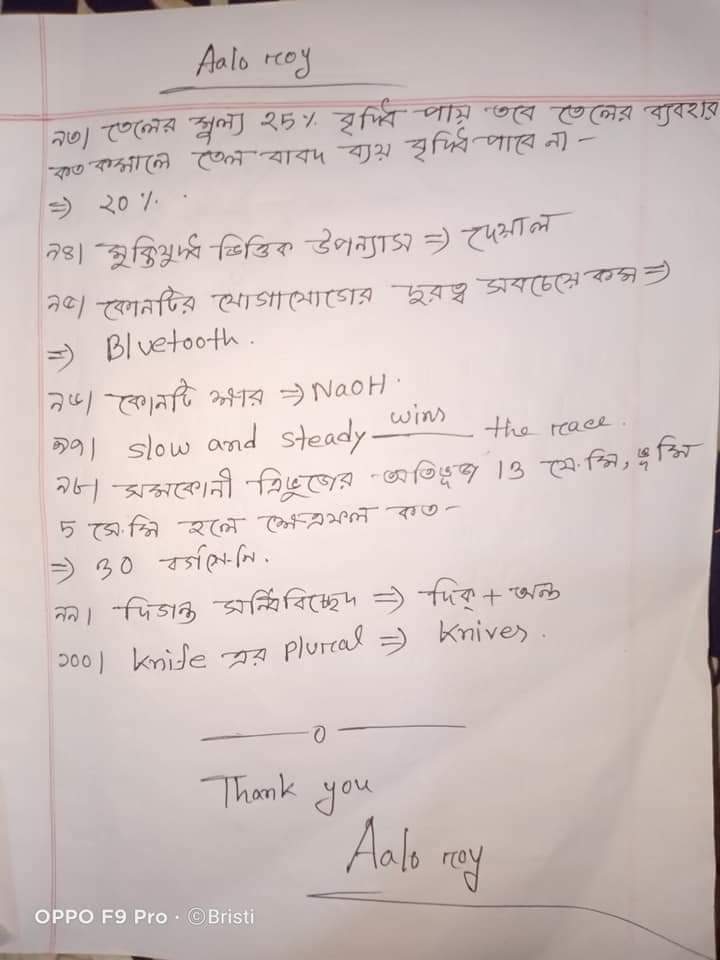 Aalo roy
৯৩। তেলের মূল্য ২৫% বৃদ্ধি পায় তবে তেলের ব্যবহার
কত কমালে তেল বাবদ ব্যয় বৃদ্ধি পাবে না -
⇒ ২০%.
৯৪। মুক্তিযুদ্ধ ভিত্তিক উপন্যাস ⇒ দেয়াল
৯৫। কোনটির যোগাযোগের দূরত্ব সবচেয়ে কম ⇒
⇒ Bluetooth.
৯৬। কোনটি ক্ষার ⇒ NaOH.
৯৭। slow and steady wins the race.
৯৮। সমকোনী ত্রিভুজের অতিভুজ 13 সে.মি, ভূমি
5 সে.মি হলে ক্ষেত্রফল কত -
⇒ ৩০ বর্গসে.মি.
৯৯। দিগন্ত সন্ধিবিচ্ছেদ ⇒ দিক্ + অন্ত
১০০। knife এর plural ⇒ knives.
0
Thank you
Aalo roy
OPPO F9 Pro · ©Bristi